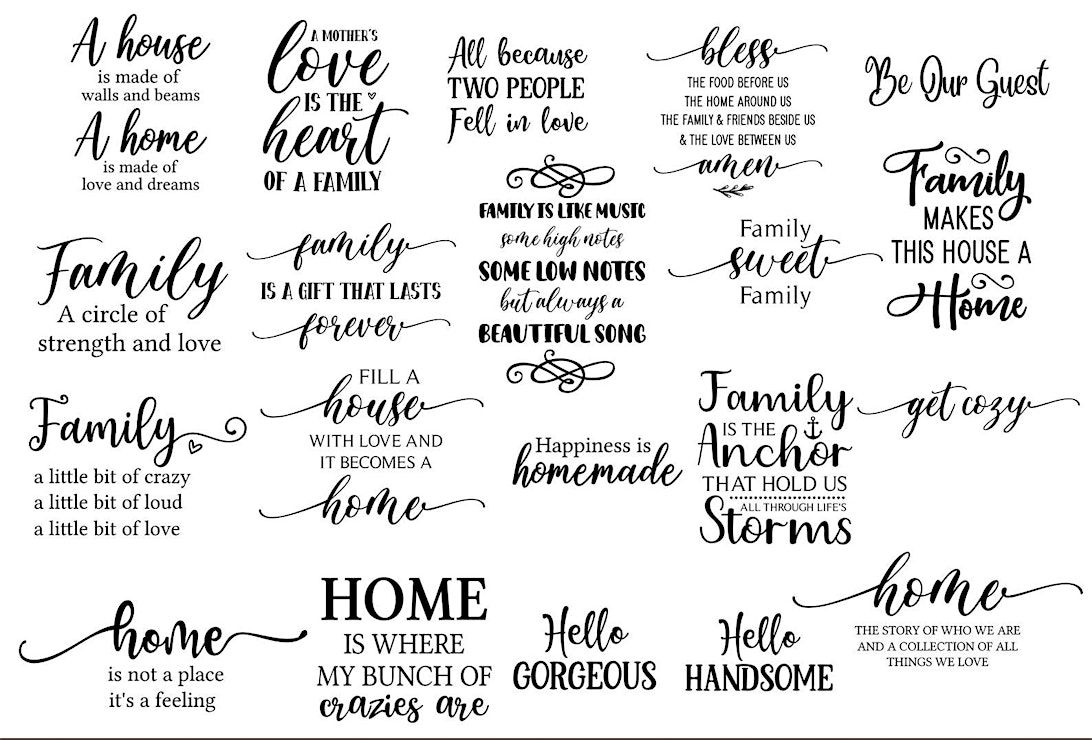 A house
is made of
walls and beams
A home
is made of
love and dreams
A MOTHER'S
love
IS THE
heart
OF A FAMILY
All because
TWO PEOPLE
Fell in love
bless
THE FOOD BEFORE US
THE HOME AROUND US
THE FAMILY & FRIENDS BESIDE US
& THE LOVE BETWEEN US
amen
Be Our Guest
Family
A circle of
strength and love
family
IS A GIFT THAT LASTS
forever
FAMILY IS LIKE MUSIC
some high notes
SOME LOW NOTES
but always a
BEAUTIFUL SONG
Family
sweet
Family
Family
MAKES
THIS HOUSE A
Home
Family
a little bit of crazy
a little bit of loud
a little bit of love
FILL A
house
WITH LOVE AND
IT BECOMES A
home
Happiness is
homemade
Family
IS THE
Anchor
THAT HOLD US
ALL THROUGH LIFE'S
Storms
get cozy
home
is not a place
it's a feeling
HOME
IS WHERE
MY BUNCH OF
crazies are
Hello
GORGEOUS
Hello
HANDSOME
home
THE STORY OF WHO WE ARE
AND A COLLECTION OF ALL
THINGS WE LOVE